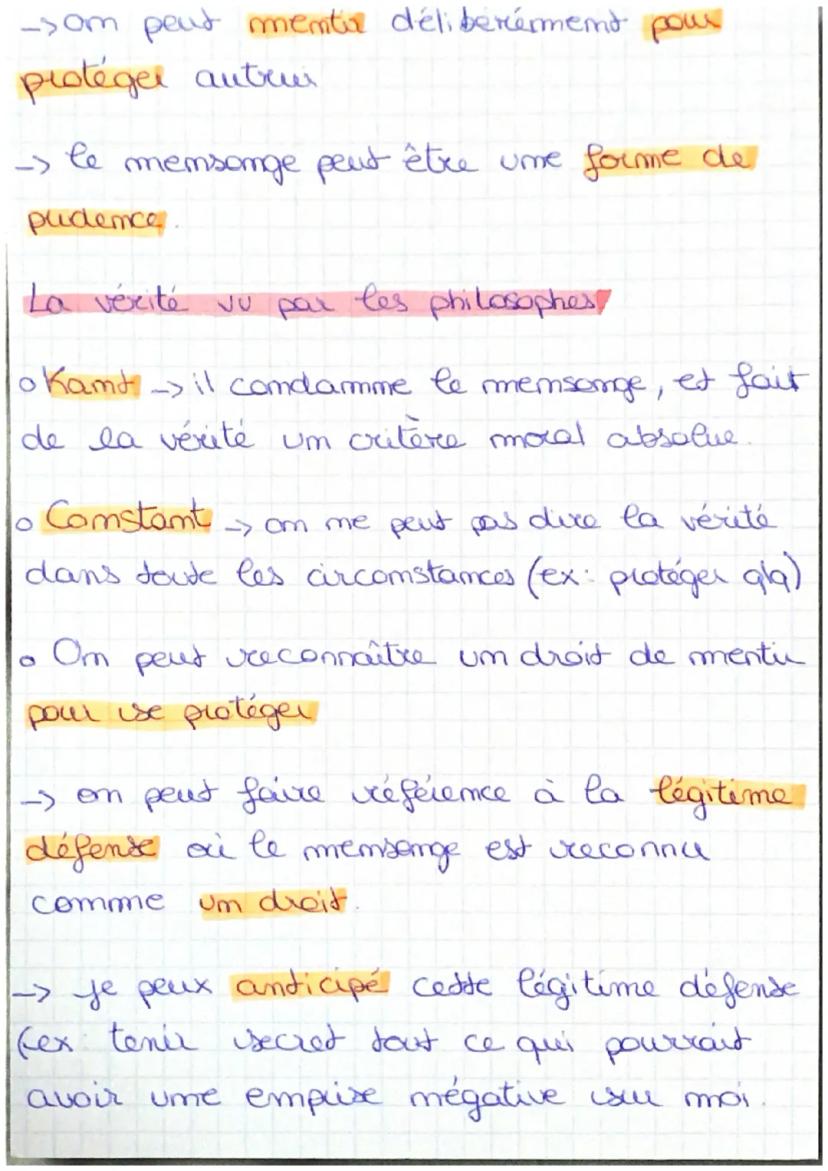 -> on peut mentir délibérérment pour
protéger autrui
-> le mensonge peut être une forme de
prudence.
La vérité vu par les philosophes
o Kant -> il condamne le mensonge, et fait
de la vérité un critère moral absolue.
o Constant -> on ne peut pas dire la vérité
dans toute les circonstances (ex: protéger qlq)
o On peut reconnaître un droit de mentir
pour se protéger
-> on peut faire référence à la légitime
défense où le mensonge est reconnu
comme un droit.
-> je peux anticipé cette légitime défense
(ex: tenir secret tout ce qui pourrait
avoir une emprise négative sur moi.